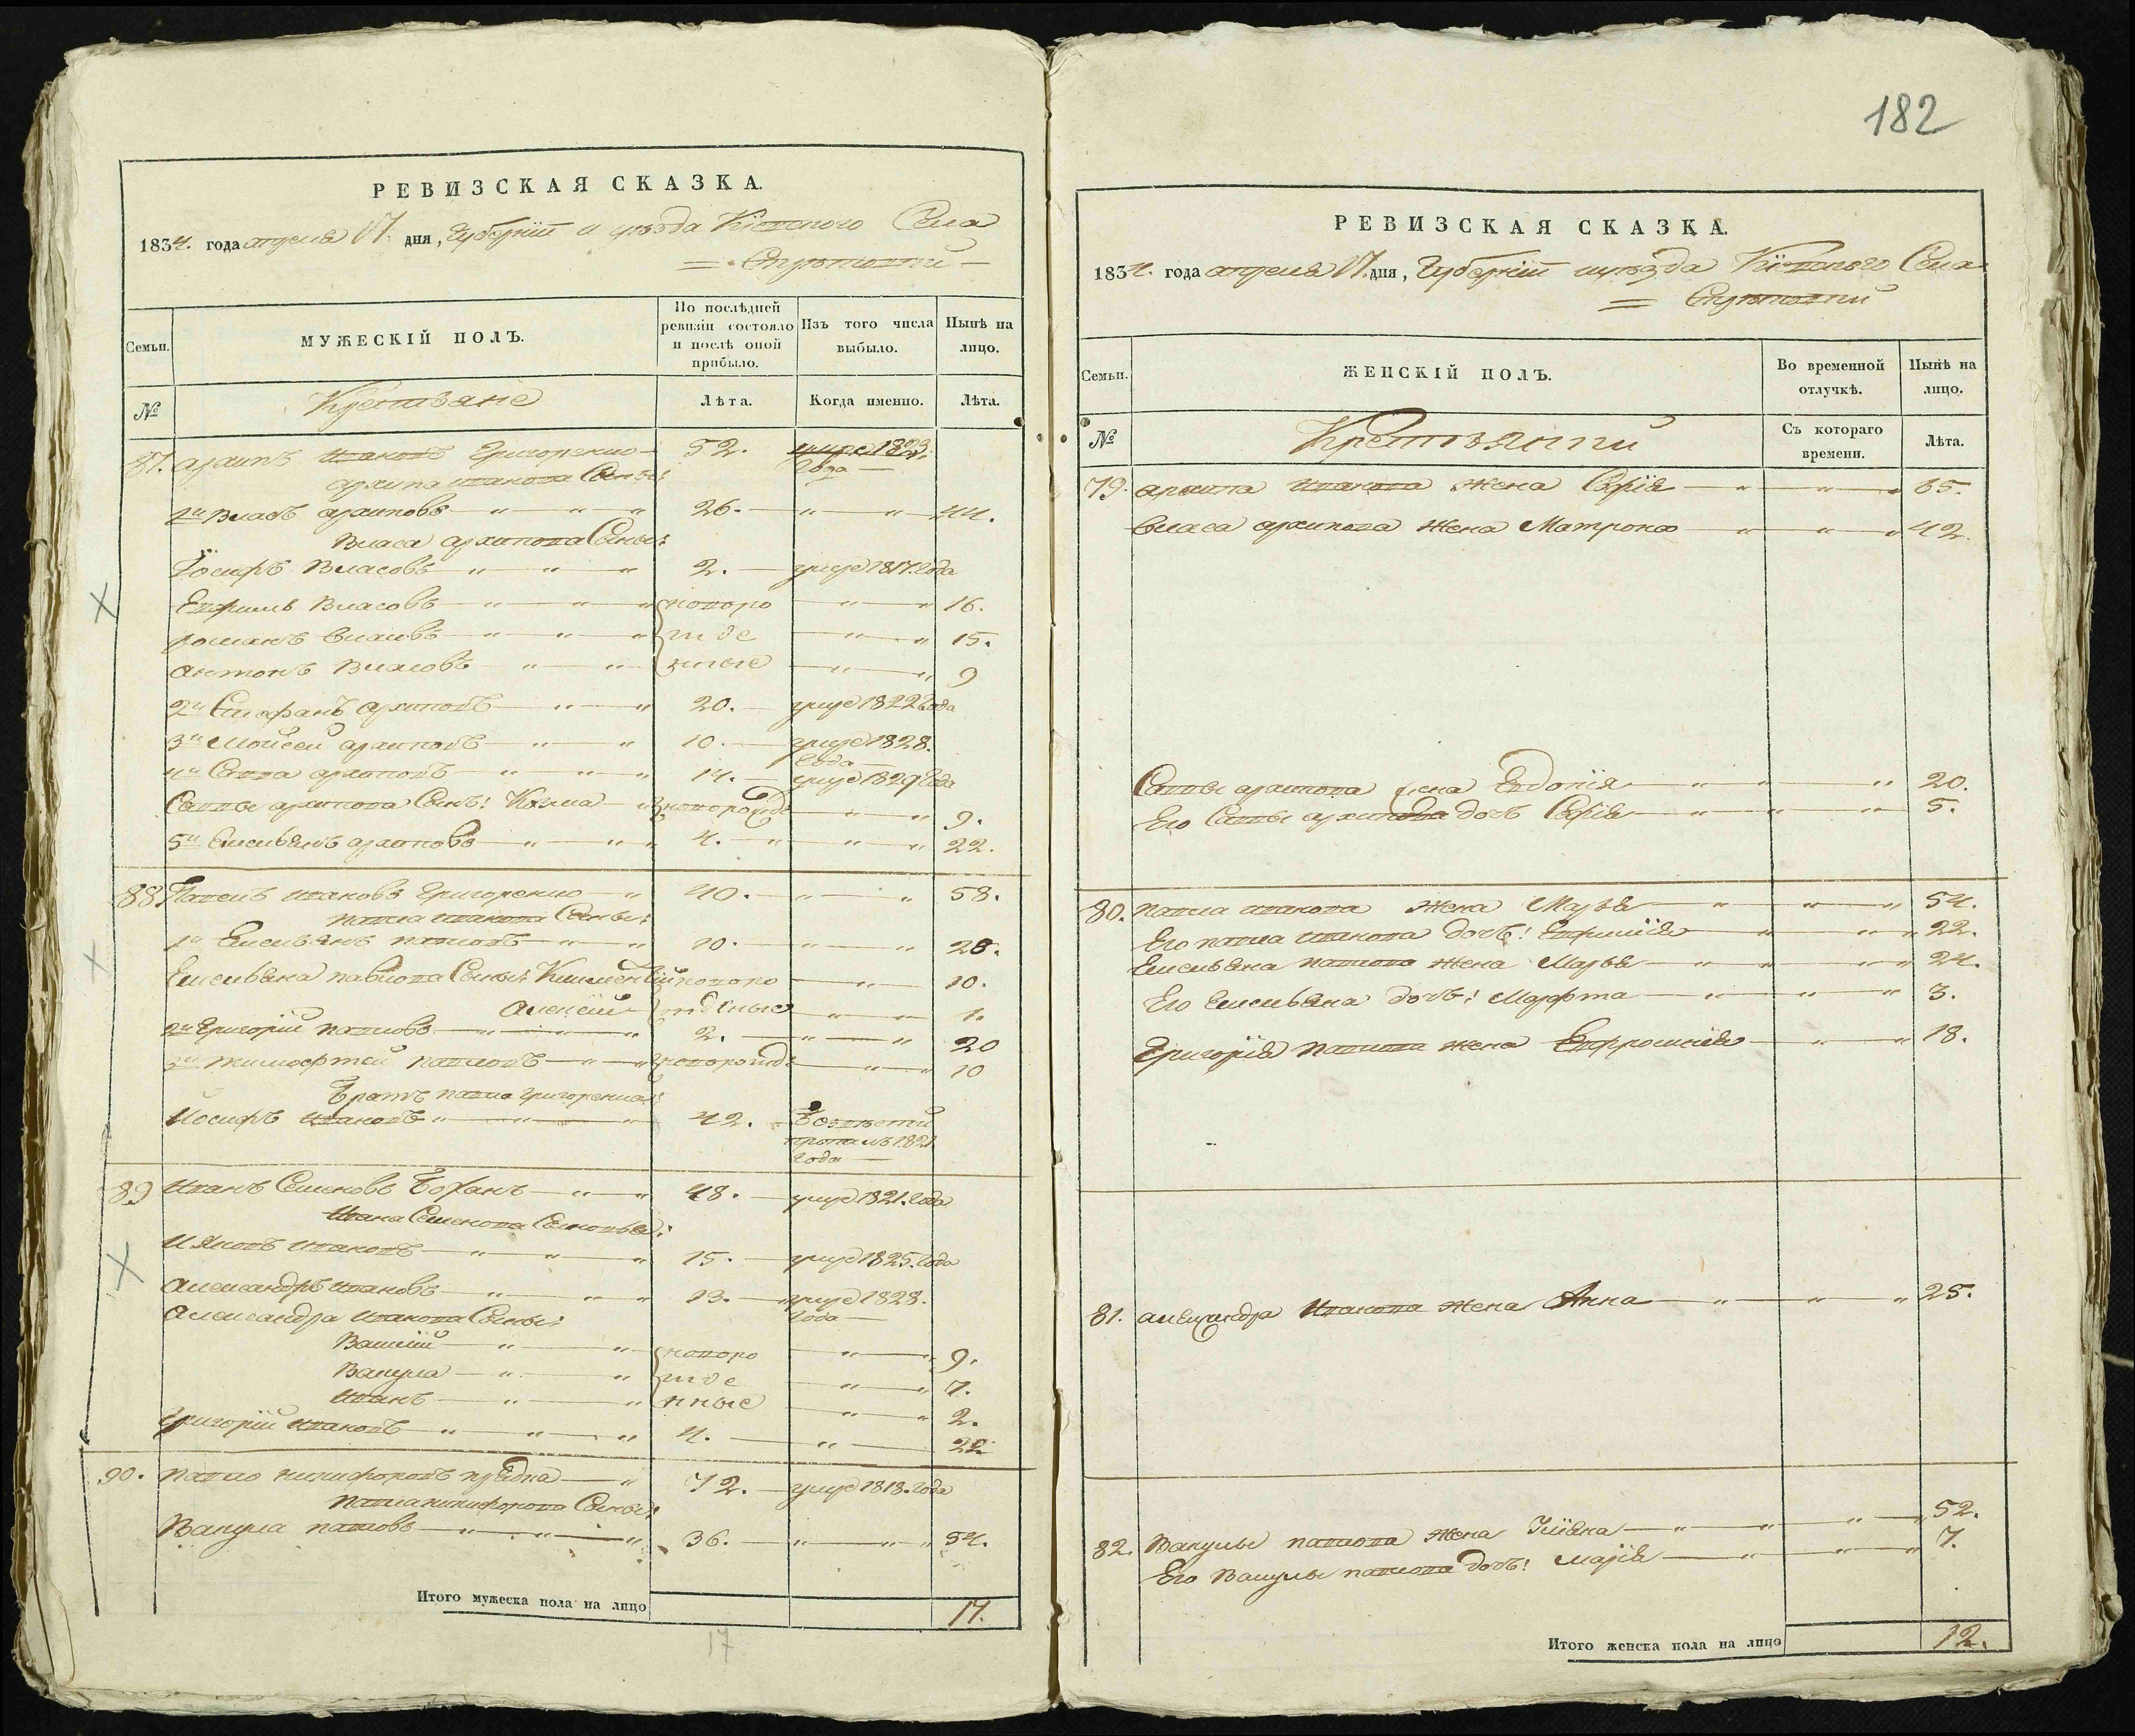 РЕВИЗСКАЯ СКАЗКА.
1834. года апреля 17. дня, Губерніи и уѣзда Кіевского Села
МУЖЕСКІЙ ПОЛЪ.
Семьи.
По послѣдней ревизіи состояло и послѣ оной прибыло.
Изъ того числа выбыло.
Нынѣ на лицо.
№ Крестьяне Лѣта. Когда именно. Лѣта.
87. Архипъ Ивановъ Григоренко 52. умре 1823. года
Архипа Иванова Сыны:
1й Власъ Архиповъ 26. 44.
Власа Архипова Сыны:
Іосифъ Власовъ 2. умре 1817. года
Евфимъ Власовъ новоро 16.
Романъ Власовъ жде 15.
Антонъ Власовъ нные 9
2й Стефанъ Архиповъ 20. умре 1822 года
3й Мойсей Архиповъ 10. умре 1828. года
4й Савва Архиповъ 14. умре 1829 года
Саввы Архипова Сынъ: Козма новорожд 9.
5й Емельянъ Архиповъ 4. 22.
88. Павелъ Ивановъ Григоренко 40. 58.
Павла Иванова Сыны:
1й Емельянъ Павловъ 10. 28.
Емельяна Павлова Сыны: Климентій новоро 10.
Алексій жденные 1.
2й Григорій Павловъ 2. 20
3й Тимофтей Павловъ новорожд 10
Братъ Павла Григоренка:
Иосифъ Ивановъ 42. Безвѣсти пропалъ 1821 года
89 Иванъ Семеновъ Боханъ 48. умре 1821. года
Ивана Семенова Сыновья:
Яковъ Ивановъ 15. умре 1825. года
Александръ Ивановъ 13. умре 1828. года
Александра Иванова Сыны:
Василій новоро 9.
Вакула жде 7.
Иванъ нные 2.
Григорій Ивановъ 4. 22
90. Павло Никифоровъ 72. умре 1818. года
Павла Никифорова Сыны:
Вакула Павловъ 36. 54.
Итого мужеска пола на лицо 17.
17
182
РЕВИЗСКАЯ СКАЗКА.
1834. года апреля 17. дня, Губерніи и уѣзда Кіевского Села
Семьи.
ЖЕНСКІЙ ПОЛЪ.
Во временной отлучкѣ.
Нынѣ на лицо.
№ Крестьянки Съ котораго времени. Лѣта.
79. Архипа Иванова жена Софія 65.
Власа Архипова жена Матрона 42.
Саввы Архипова жена Евдокія 20.
Его Саввы Архипова дочь Софія 5.
80. Павла Иванова жена Марья 54.
Его Павла Иванова дочь: Евфимія 22.
Емельяна Павлова жена Марья 24.
Его Емельяна дочь: Марфта 3.
Григорія Павлова жена Евфросинія 18.
81. Александра Иванова жена Анна 25.
82. Вакулы Павлова жена Уліяна 52.
Его Вакулы Павлова дочь: Марія 7.
Итого женска пола на лицо 12.